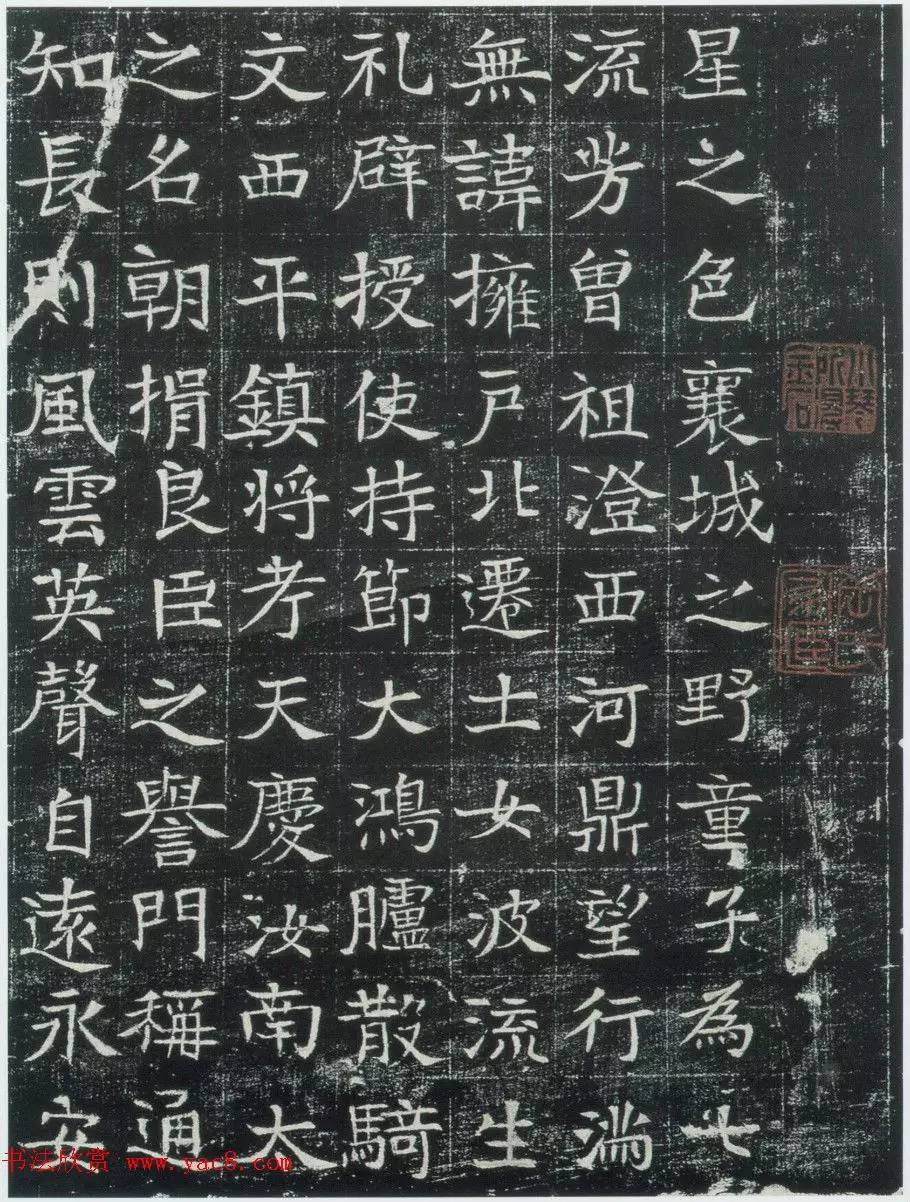 星之色襄城之野童子為七
流芳曽祖澄西河鼎望行満
無諱擁戸北遷士女波流生
礼辟授使持節大鴻臚散騎
文西平鎮将考天慶汝南大
之名朝捐良臣之譽門稱通
知長則風雲英聲自遠永安
书法欣赏 www.yac8.com